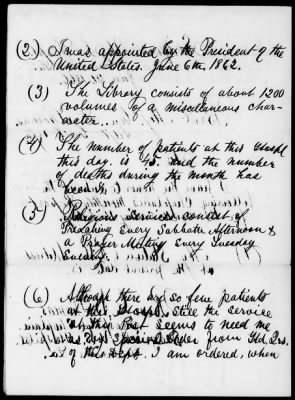 (2) I was appointed by the President of the
United States. June 6th. 1862.
(3) The Library consists of about 1200
volumes of a miscellaneous char-
acter.
(4) The number of patients at this Hospl.
this day. is 45. and the number
of deaths during the month has
been
(5) Religious Services consist of
Preaching Every Sabbath Afternoon &
a Prayer Meeting Every Tuesday
Evening.
(6) Although there are so few patients
at this Hospl. Still the service
at this Post seems to need me
Special Order from Hd, Qrs.
of this Dept. I am ordered, when